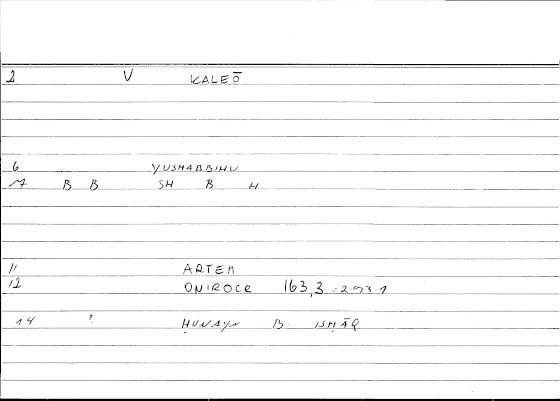 2 V KALEŌ
6 YUSHABBIHU
M B B SH B H
11 ARTEM
12 ONIROCR 163,3
14 ? ḤUNAYN B. ISḤĀQ